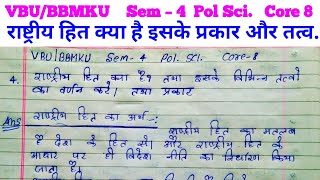 VBU/BBMKU Sem - 4 Pol Sci. Core 8
राष्ट्रीय हित क्या है इसके प्रकार और तत्व.
VBU/BBMKU Sem-4 Pol. Sci. Core-8
4. राष्ट्रीय हित क्या है? तथा इसके विभिन्न तत्वों
का वर्णन करें। तथा प्रकार
Ans राष्ट्रीय हित का अर्थ:- राष्ट्रीय हित का मतलब
है देश के हित से। और राष्ट्रीय हित के
आधार पर ही विदेश नीति का निर्धारण किया
जाता है।